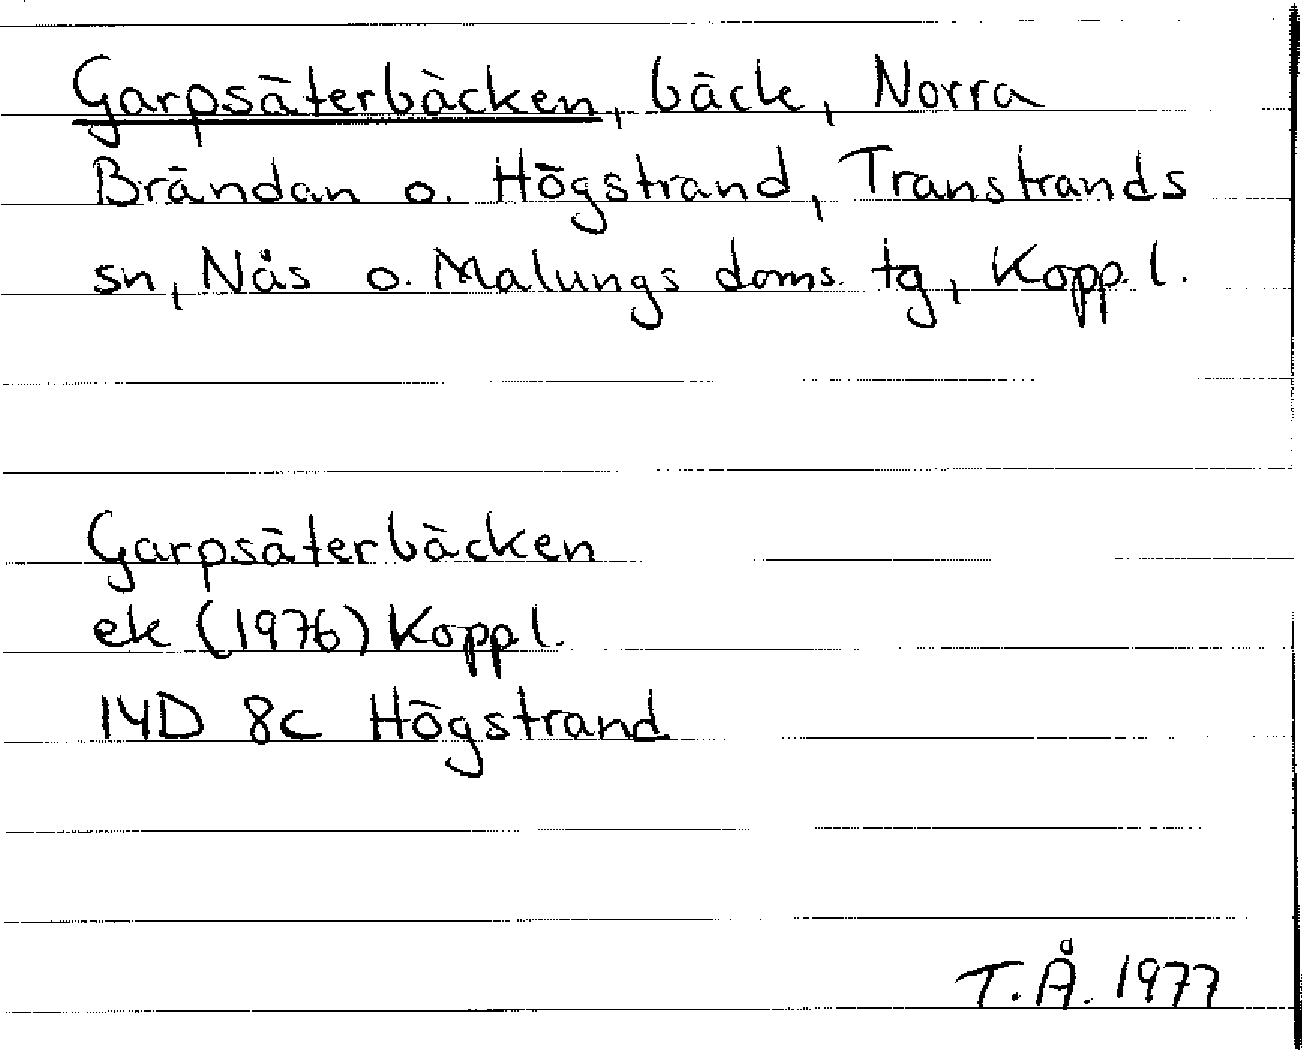 Garpsäterbäcken, bäck, Norra
Brändan o. Högstrand, Transtrands
sn, Nås o. Malungs doms. tg, Kopp. l.
Garpsäterbäcken
ek (1976) Kopp l.
14D 8c Högstrand
T.Å. 1977